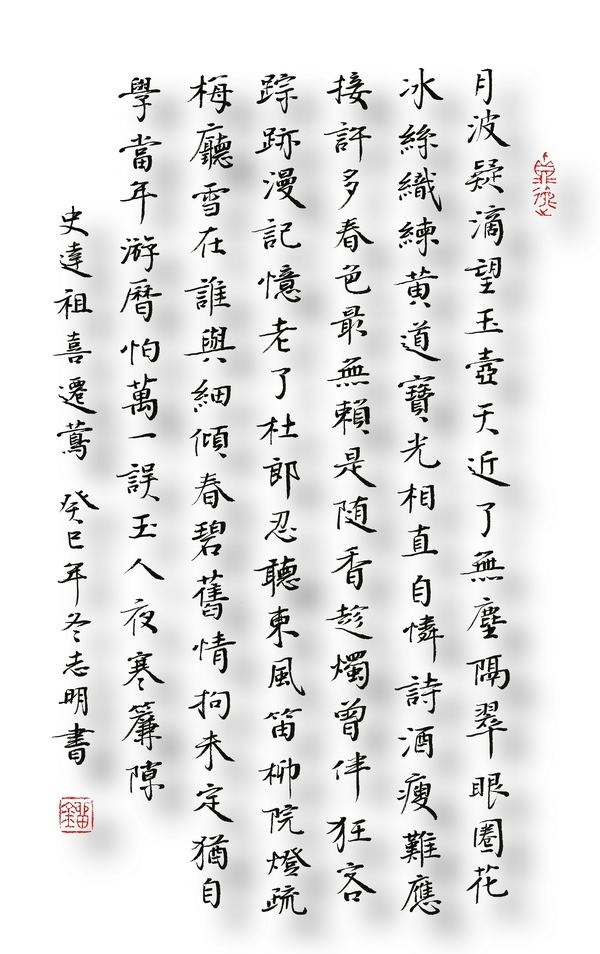 月波疑滴望玉壺天近了無塵隔翠眼圈花
冰絲織練黃道寶光相直自憐詩酒瘦難應
接許多春色最無賴是随香趁燭曾伴狂客
踪跡漫記憶老了杜郎忍聽東風笛柳院燈疏
梅廳雪在誰與細傾春碧舊情拘未定猶自
學當年游曆怕萬一誤玉人夜寒簾隙
史達祖喜遷鶯 癸巳年冬志明書